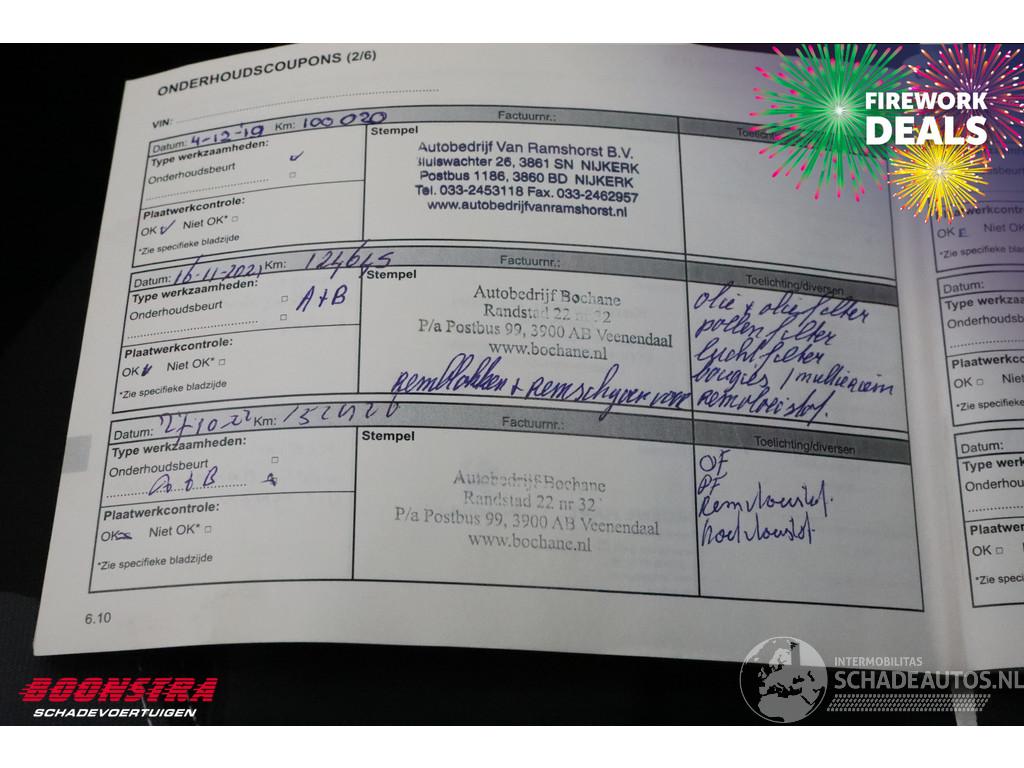 ONDERHOUDSCOUPONS (2/6)
VIN:
Datum: 4-12-'19 Km: 100 020 Factuurnr.:
Type werkzaamheden:
Onderhoudsbeurt
Plaatwerkcontrole:
OK Niet OK*
*Zie specifieke bladzijde
Stempel
Autobedrijf Van Ramshorst B.V.
Sluiswachter 26, 3861 SN NIJKERK
Postbus 1186, 3860 BD NIJKERK
Tel. 033-2453118 Fax. 033-2462957
www.autobedrijfvanramshorst.nl
Datum: 16-11-2021 Km: 124645 Factuurnr.:
Type werkzaamheden:
Onderhoudsbeurt A+B
Plaatwerkcontrole:
OK Niet OK*
*Zie specifieke bladzijde
Stempel
Autobedrijf Bochane
Randstad 22 nr 32
P/a Postbus 99, 3900 AB Veenendaal
www.bochane.nl
remblokken + remschijven voor
Toelichting/diversen
olie + oliefilter
pollenfilter
luchtfilter
bougies / multiriem
remvloeistof.
Datum: 27-10-22 Km: 152420 Factuurnr.:
Type werkzaamheden:
Onderhoudsbeurt
A+B
Plaatwerkcontrole:
OK Niet OK*
*Zie specifieke bladzijde
Stempel
Autobedrijf Bochane
Randstad 22 nr 32
P/a Postbus 99, 3900 AB Veenendaal
www.bochane.nl
Toelichting/diversen
OF
PF
Remvloeistof.
koelvloeistof
6.10
OK Niet OK
*Zie specifieke
Datum:
Type werkzaam
Onderhoudsb
Plaatwerkcont
OK Niet O
*Zie specifieke
Datum:
Type w
Onderhou
Plaatwer
OK N
*Zie speci
FIREWORK
DEALS
BOONSTRA
SCHADEVOERTUIGEN
INTERMOBILITAS
SCHADEAUTOS.NL